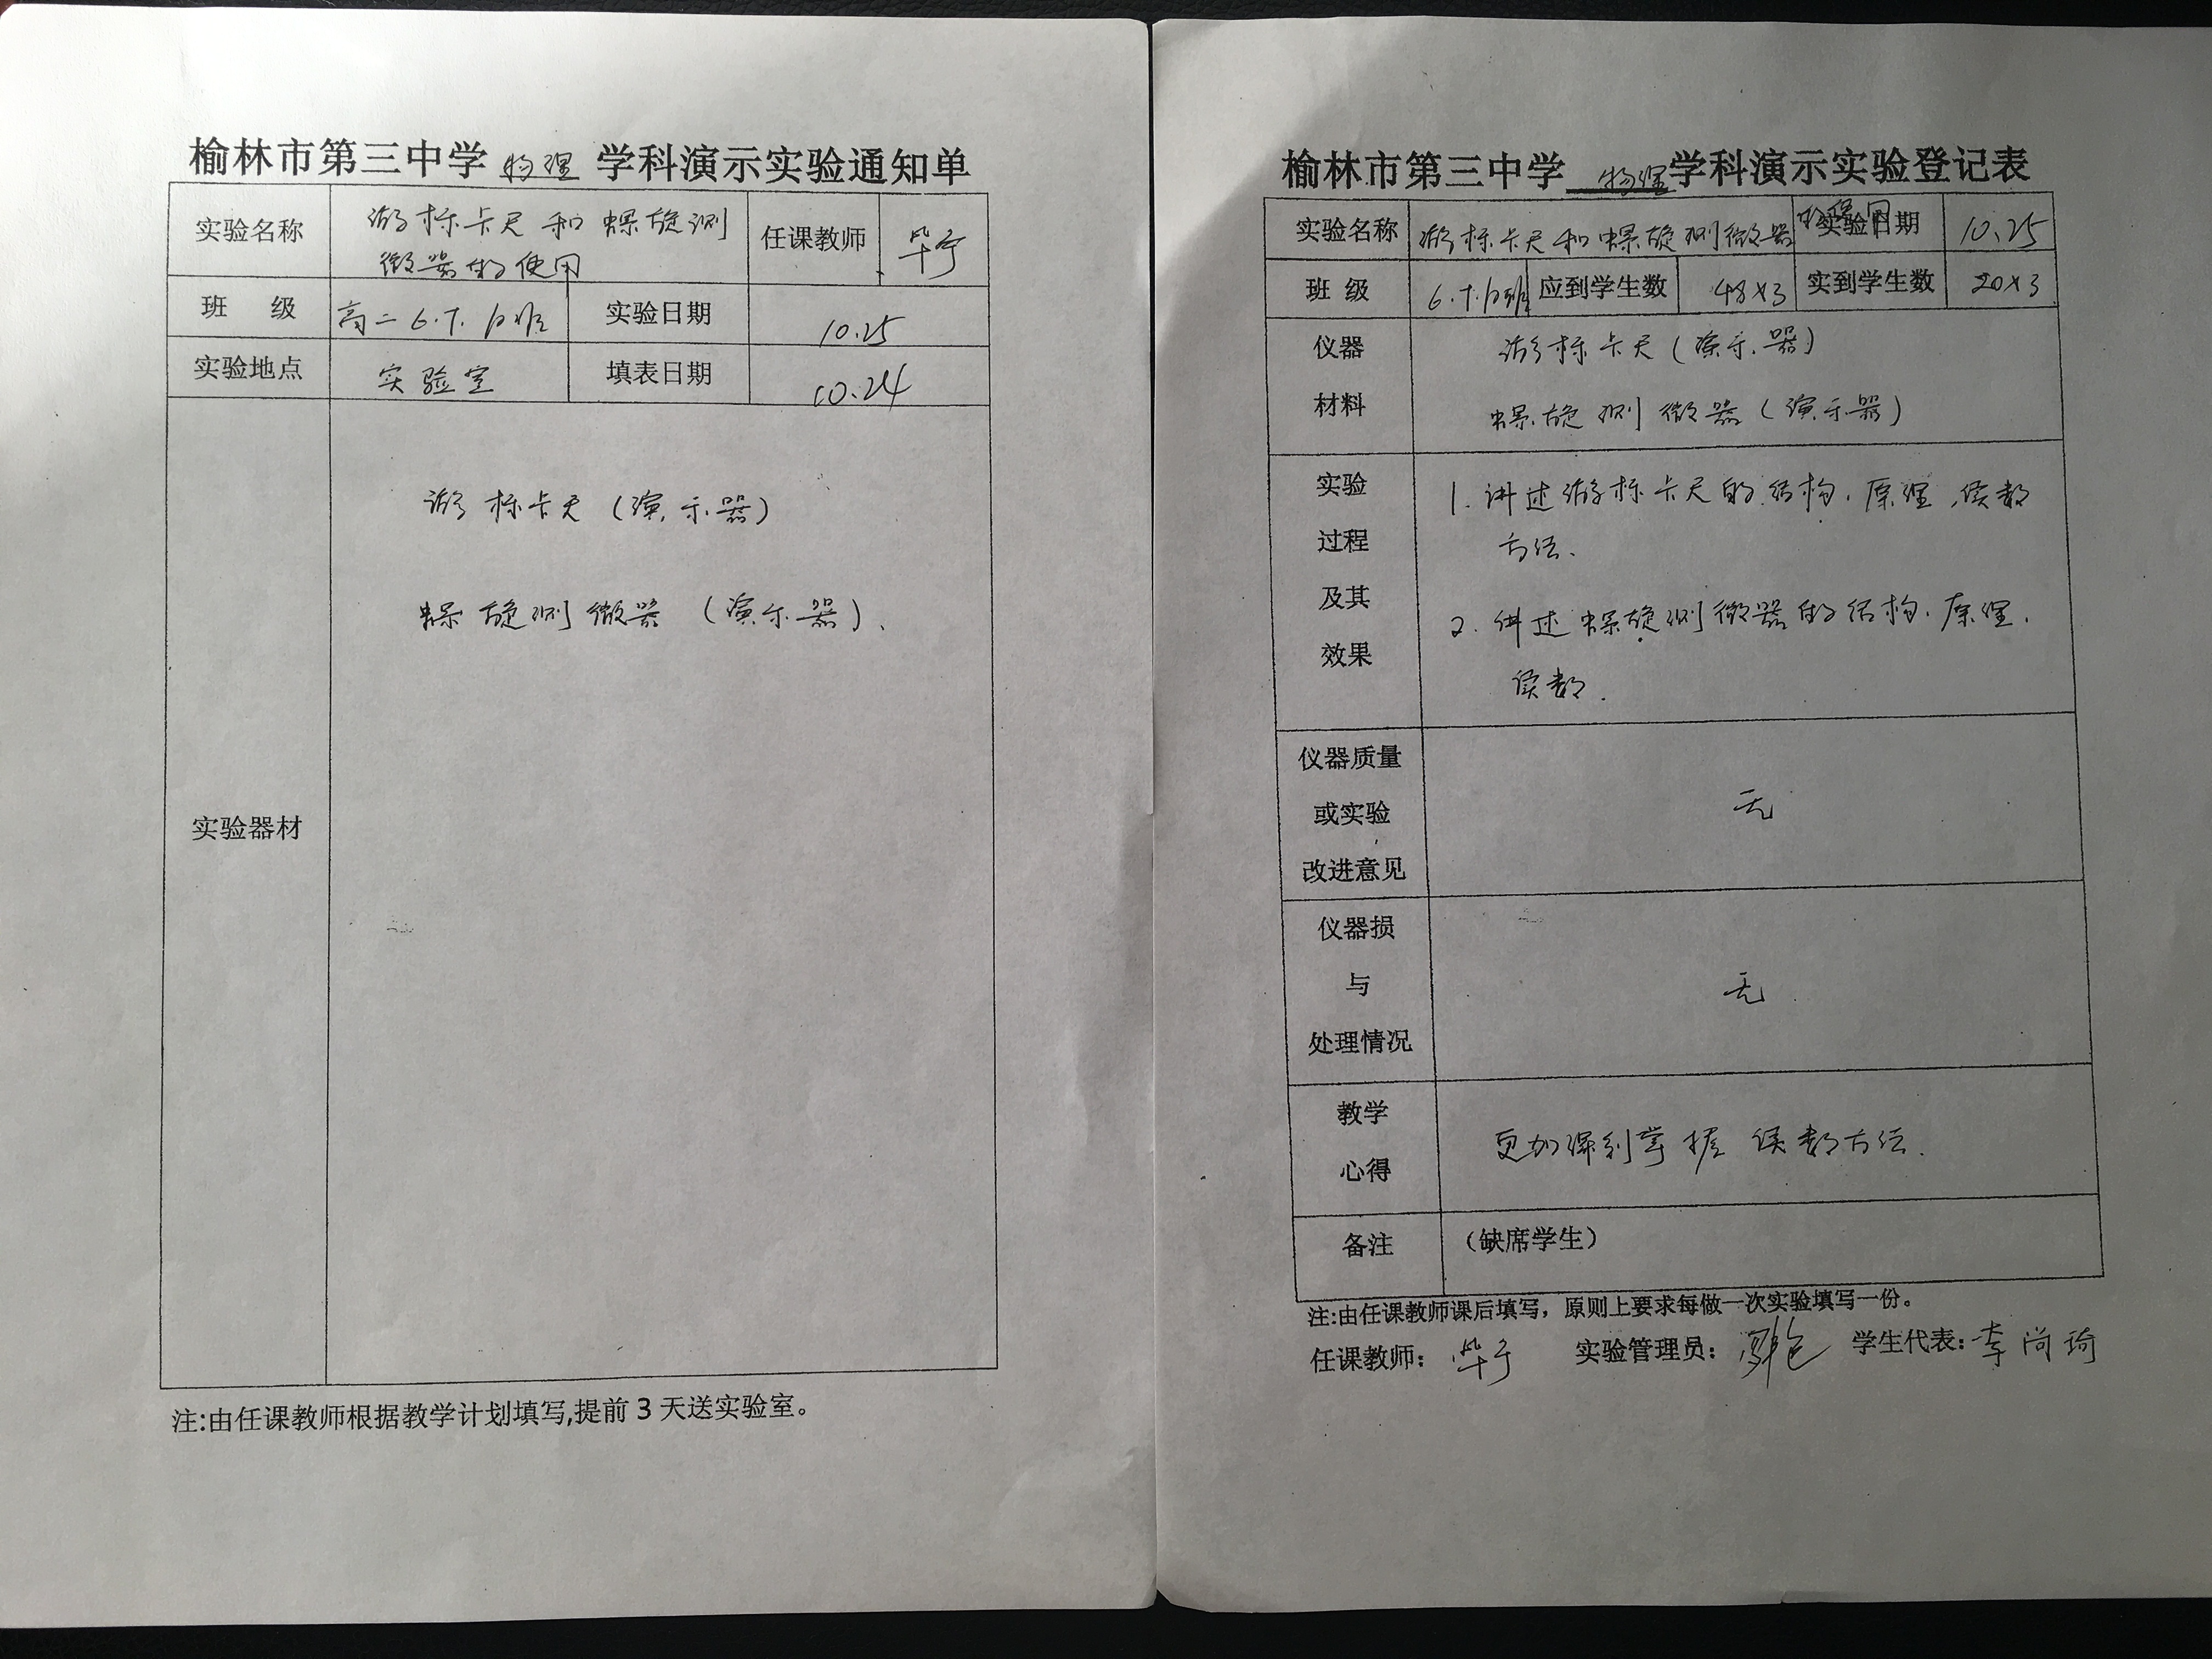 榆林市第三中学 物理 学科演示实验通知单
实验名称 游标卡尺和螺旋测
微器的使用 任课教师 毕宁
班 级 高二6.7.12班 实验日期 10.25
实验地点 实验室 填表日期 10.24
游标卡尺(演示器)
螺旋测微器(演示器).
实验器材
注:由任课教师根据教学计划填写,提前3天送实验室。
榆林市第三中学 物理 学科演示实验登记表
实验名称 游标卡尺和螺旋测微器的使用 实验日期 10.25
班 级 6.7.12班 应到学生数 48×3 实到学生数 20×3
仪器 游标卡尺(演示器)
材料 螺旋测微器(演示器)
实验 1.讲述游标卡尺的结构.原理,读数
过程 方法.
及其 2.讲述螺旋测微器的结构.原理.
效果 读数.
仪器质量
或实验 无
改进意见
仪器损
与 无
处理情况
教学 更加深刻掌握读数方法.
心得
备注 (缺席学生)
注:由任课教师课后填写，原则上要求每做一次实验填写一份。
任课教师: 毕宁 实验管理员: 学生代表:李尚琦